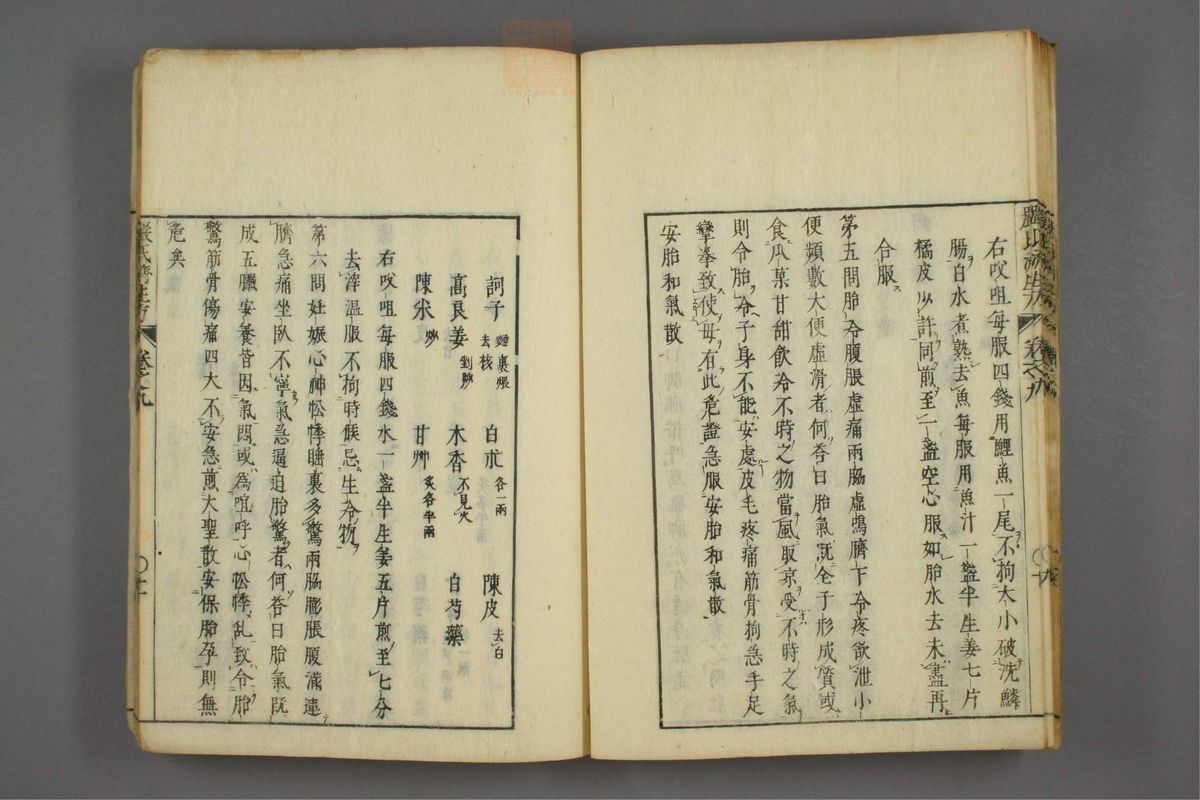 右㕮咀每服四錢用鯉魚一尾不拘大小破洗鱗
腸白水煮熟去魚每服用魚汁一盞半生姜七片
橘皮少許同煎至一盞空心服如胎水去未盡再
合服
第五問胎冷腹脹虛痛兩脇虛鳴臍下冷疼欲泄小
便頻數大便虛滑者何荅曰胎氣既全子形成質或
食瓜菓甘甜飲冷不時之物當風取凉受不時之氣
則令胎冷子身不能安處皮毛疼痛筋骨拘急手足
攣拳致使母有此危證急服安胎和氣散
安胎和氣散
訶子 麵裹煨去核 白朮 各一兩 陳皮 去白
高良姜 剉炒 木香 不見火 白芍藥
陳米 炒 甘艸 炙各半兩
右㕮咀每服四錢水一盞半生姜五片煎至七分
去滓溫服不拘時候忌生冷物
第六問妊娠心神忪悸睡裏多驚兩脇膨脹腹滿連
臍急痛坐臥不寧氣急逼迫胎驚者何荅曰胎氣既
成五臟安養皆因氣悶或為喧呼心忪悸亂致令胎
驚筋骨傷痛四大不安急煎大聖散安保胎孕則無
危矣
嚴氏濟生方 卷之九